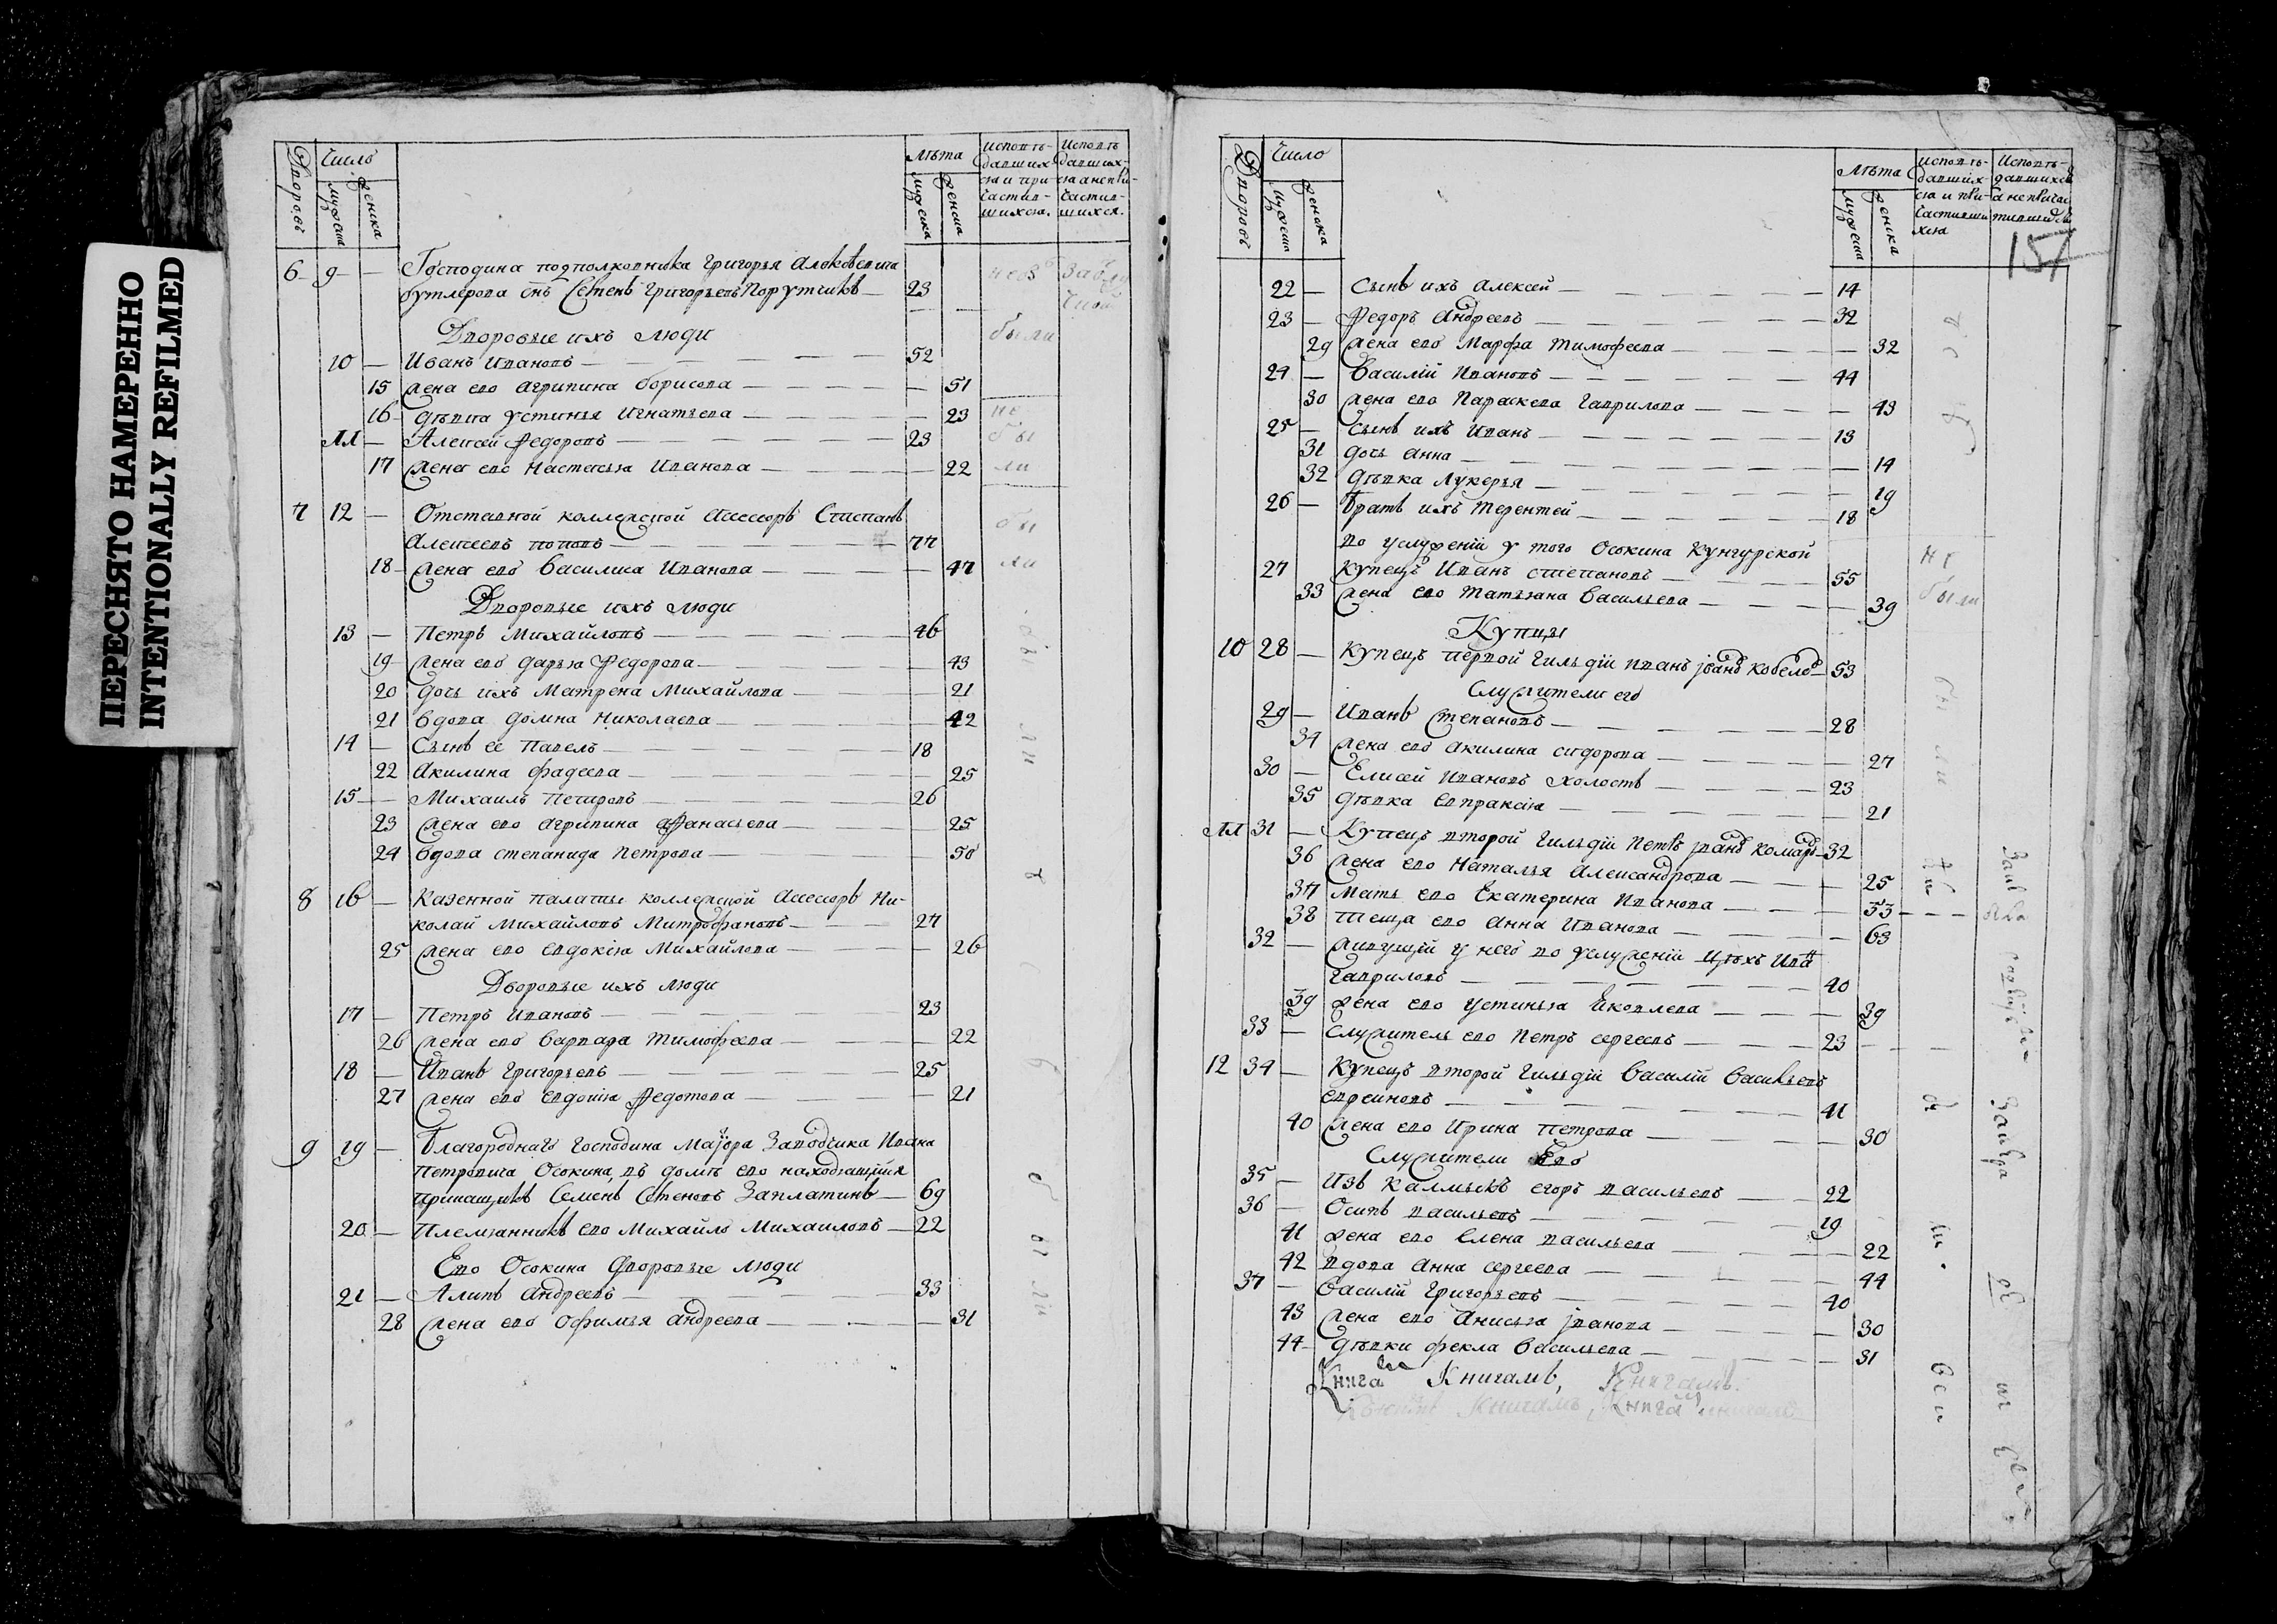 ПЕРЕСНЯТО НАМЕРЕННО
INTENTIONALLY REFILMED
Дворовъ Число мужеска женска Лѣта мужеска женска
Исповѣдавшихся и причастившихся.
Исповѣдавшихся а непричастившихся.
6 9 — Господина подполковника Григорья
бутлерова сынъ Семенъ Григорьевъ Порутчикъ — 23
Дворовые ихъ люди
были
10 — Иванъ Ивановъ — 52
15 жена ево Агрипина Борисова — 51
16 дѣвка Устинья Игнатьева — 23
не
11 — Алексей Федоровъ — 23
бы
17 жена ево Настасья Иванова — 22
ли
7 12 — Отставной коллежской Ассесоръ Степанъ
бы
Алексеевъ поповъ — 77
18 жена ево Василиса Иванова — 47
ли
Дворовые ихъ люди
13 — Петръ Михайловъ — 46
19 жена ево Дарья Федорова — 43
20 дочь ихъ Матрена Михайлова — 21
21 вдова домна Николаева — 42
14 — Сынъ ее Павелъ — 18
22 Акилина Фадеева — 25
15 — Михаилъ Петровъ — 26
23 жена ево Агрипина Афанасьева — 25
24 вдова степанида Петрова — 50
8 16 — Казенной палаты коллежской Ассесоръ Ни-
колай Михайловъ Митрофановъ — 27
25 жена ево Евдокия Михайлова — 26
Дворовые ихъ люди
17 — Петръ Ивановъ — 23
26 жена ево Варвара Тимофеева — 22
18 — Иванъ Григорьевъ — 25
27 жена ево Евдокия Федотова — 21
9 19 — Благороднаго Господина Маіора Заводчика Ивана
Петровича Осокина, въ домѣ ево находящийся
прикащикъ Семенъ Семеновъ Заплатинъ — 69
20 — Племянникъ ево Михайло Михаиловъ — 22
Ево Осокина дворовые люди
21 — Алипъ Андреевъ — 33
28 жена ево Офимья Андреева — 31
Дворовъ Число мужеска женска Лѣта мужеска женска
157
22 — Сынъ ихъ Алексей — 14
23 — Федоръ Андреевъ — 32
29 жена ево Марфа Тимофеева — 32
24 — Василій Ивановъ — 44
30 жена ево Параскева Гаврилова — 43
25 — Сынъ ихъ Иванъ — 13
31 дочь Анна — 14
32 дѣвка Лукерья — 19
26 — Братъ ихъ Терентей — 18
во услуженіи у того Осокина Кунгурской
не
27 — купецъ Иванъ степановъ — 55
были
33 жена ево Татьяна Васильева — 39
Купцы
10 28 — Купецъ первой Гильдіи Иванъ — 53
Служители его
29 — Иванъ Степановъ — 28
34 жена ево Акилина сидорова — 27
30 — Елисей Ивановъ холостъ — 23
35 дѣвка Евпраксія — 21
11 31 — Купецъ второй Гильдіи — 32
36 жена ево Наталья Александрова — 25
37 Мать ево Екатерина Иванова — 53
38 теща ево Анна Иванова — 63
32 — живущій у него во услуженіи
Гавриловъ — 40
39 жена ево Устинья Яковлева — 39
33 — Служитель ево Петръ сергеевъ — 23
12 34 — Купецъ второй Гильдіи Василій Васильевъ
евреиновъ — 41
40 жена ево Ирина Петрова — 30
Служители Ево
35 — Изъ калмыкъ егоръ васильевъ — 22
36 — Осипъ васильевъ — 19
41 жена ево Елена васильева — 22
42 вдова Анна сергеева — 44
37 — Василій Григорьевъ — 40
43 жена ево Анисья іванова — 30
44 дѣвки фекла Васильева — 31
Книга Книгамъ, Книгамъ.